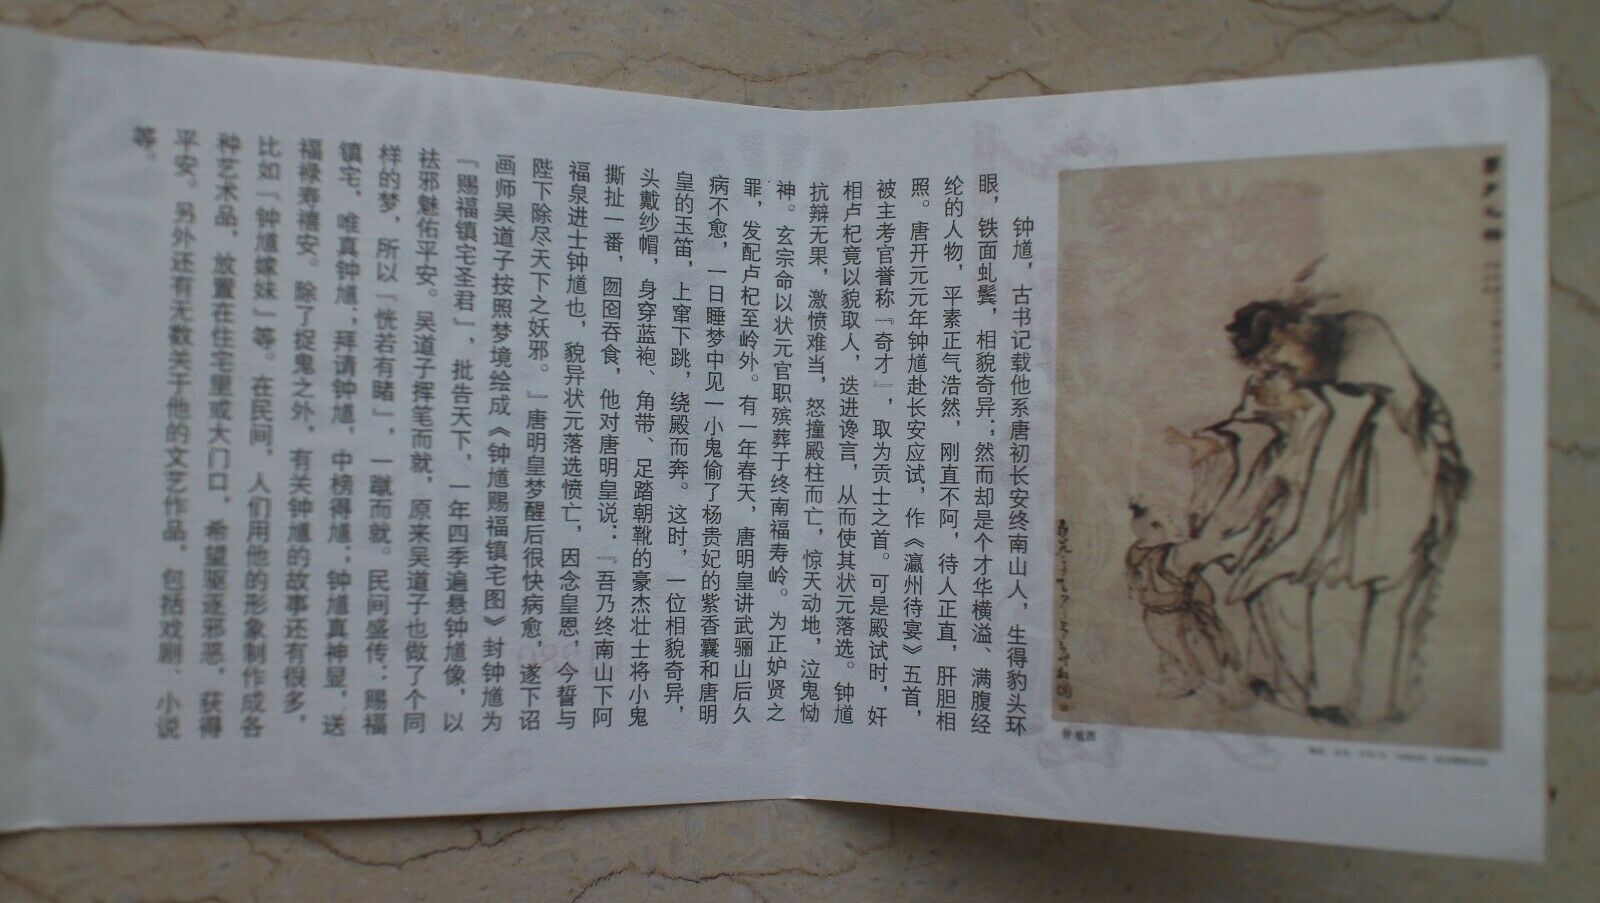 钟馗，古书记载他系唐初长安终南山人，生得豹头环
眼，铁面虬鬓，相貌奇异；然而却是个才华横溢、满腹经
纶的人物，平素正气浩然，刚直不阿，待人正直，肝胆相
照。唐开元元年钟馗赴长安应试，作《瀛州待宴》五首，
被主考官誉称『奇才』，取为贡士之首。可是殿试时，奸
相卢杞竟以貌取人，迭进谗言，从而使其状元落选。钟馗
抗辩无果，激愤难当，怒撞殿柱而亡，惊天动地，泣鬼恸
神。玄宗命以状元官职殡葬于终南福寿岭。为正妒贤之
罪，发配卢杞至岭外。有一年春天，唐明皇讲武骊山后久
病不愈，一日睡梦中见一小鬼偷了杨贵妃的紫香囊和唐明
皇的玉笛，上窜下跳，绕殿而奔。这时，一位相貌奇异，
头戴纱帽，身穿蓝袍、角带、足踏朝靴的豪杰壮士将小鬼
撕扯一番，囫囵吞食，他对唐明皇说：『吾乃终南山下阿
福泉进士钟馗也，貌异状元落选愤亡，因念皇恩，今誓与
陛下除尽天下之妖邪。』唐明皇梦醒后很快病愈，遂下诏
画师吴道子按照梦境绘成《钟馗赐福镇宅图》封钟馗为
『赐福镇宅圣君』，批告天下，一年四季遍悬钟馗像，以
祛邪魅佑平安。吴道子挥笔而就，原来吴道子也做了个同
样的梦，所以『恍若有睹』，一蹴而就。民间盛传：赐福
镇宅，唯真钟馗；拜请钟馗，中榜得馗；钟馗真神显，送
福禄寿禧安。除了捉鬼之外，有关钟馗的故事还有很多，
比如『钟馗嫁妹』等。在民间，人们用他的形象制作成各
种艺术品，放置在住宅里或大门口，希望驱逐邪恶，获得
平安。另外还有无数关于他的文艺作品，包括戏剧、小说
等。
钟馗图